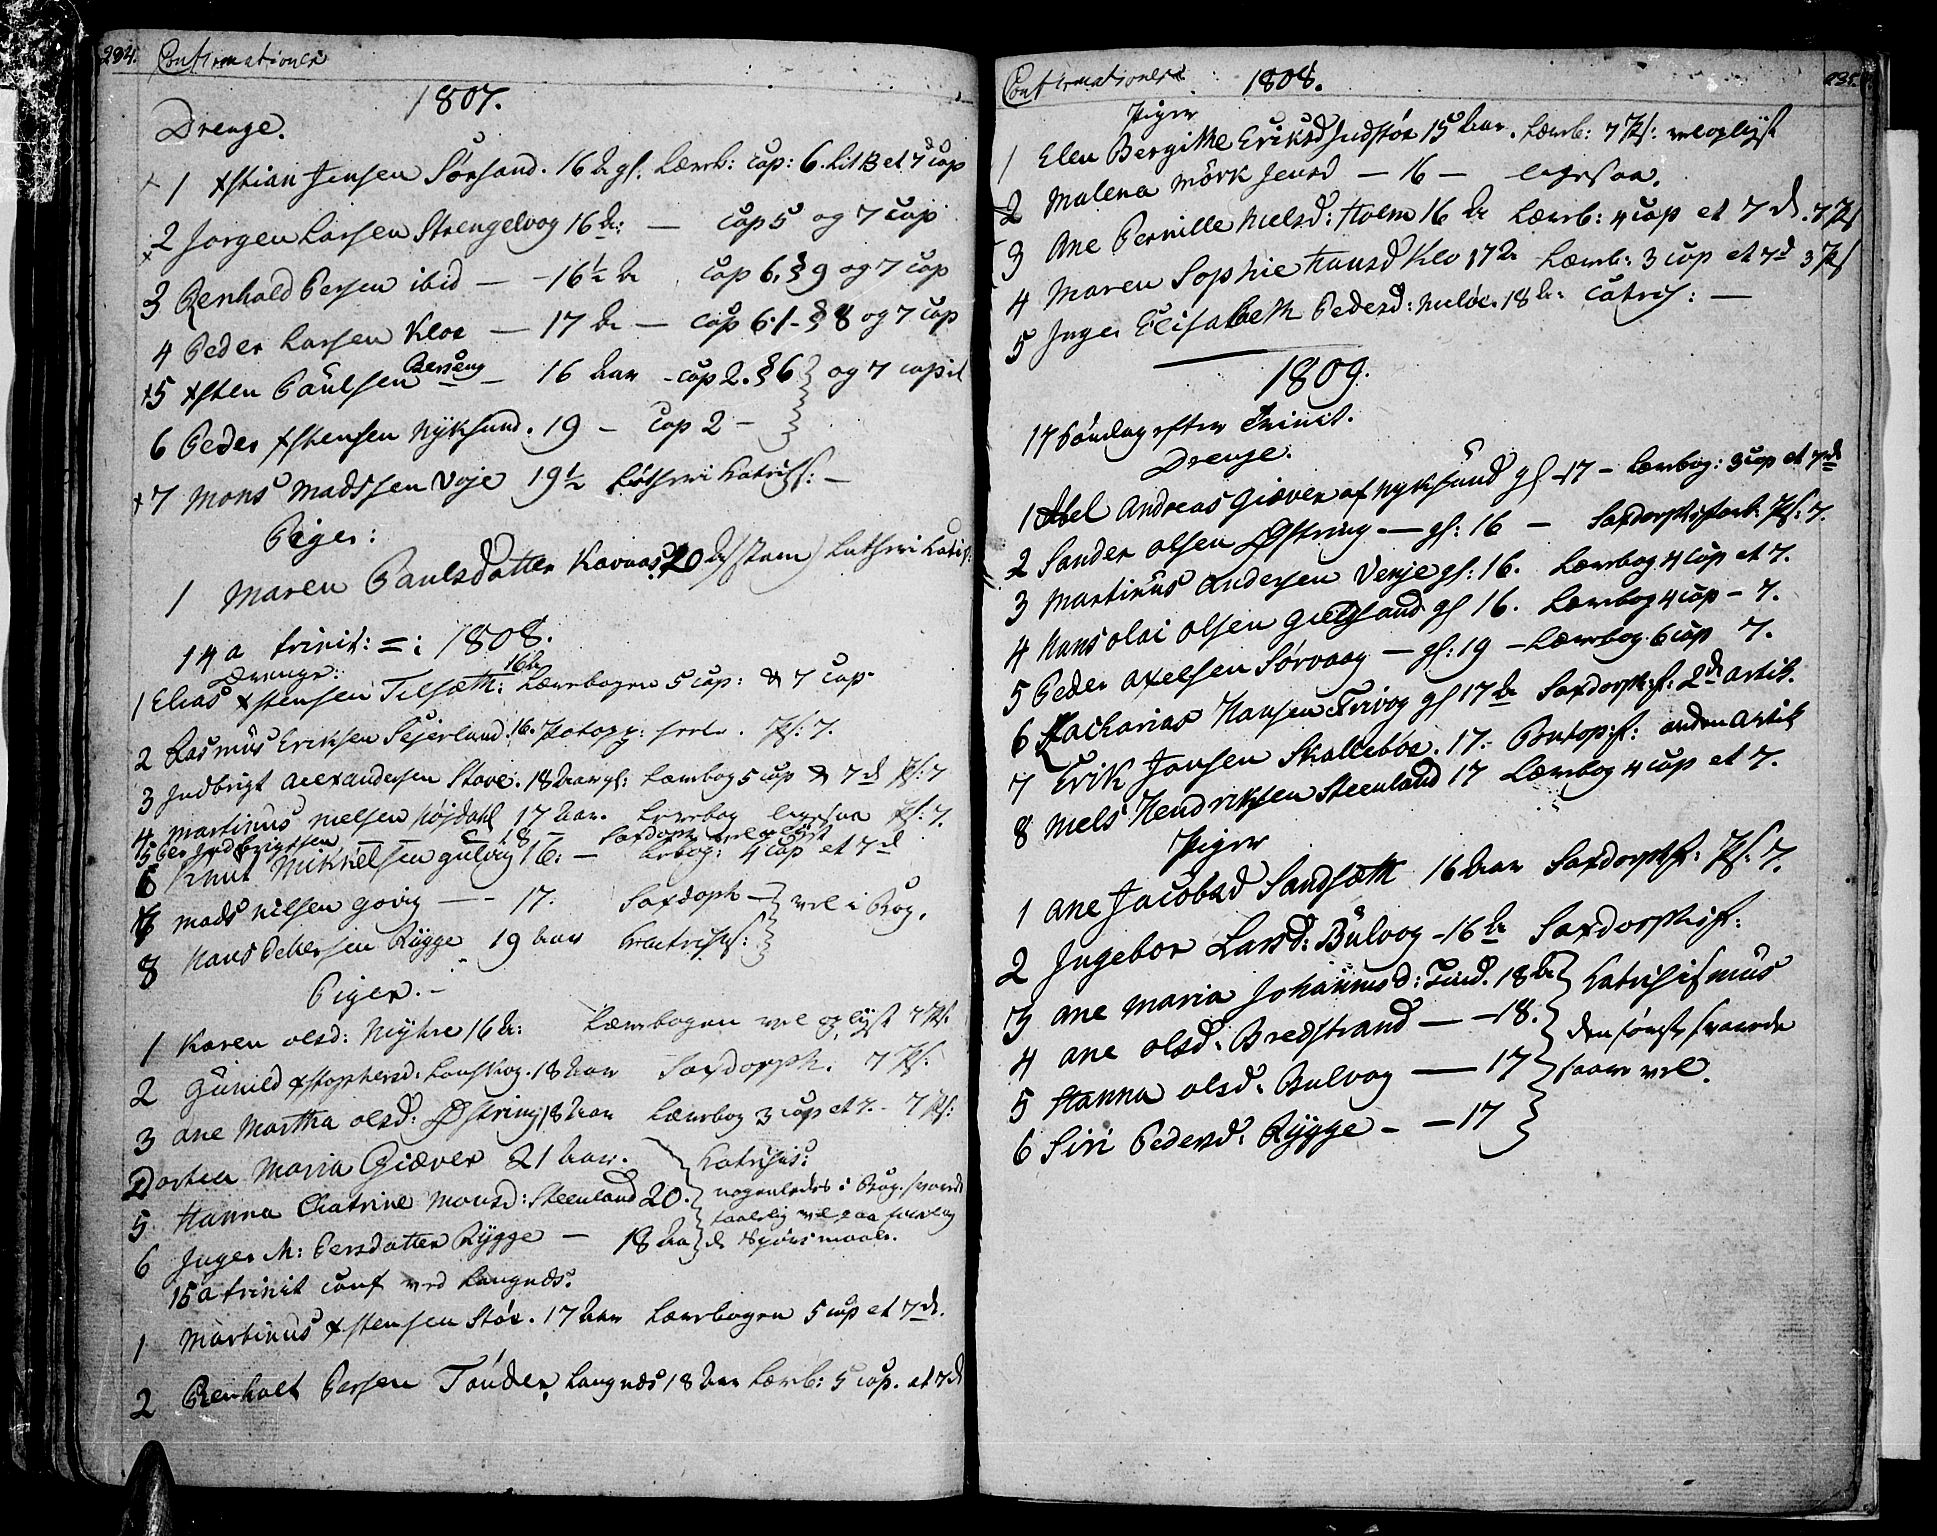 284. Confirmationer
1807.
Drenge.
1 Xstian Jensen Sørsand. 16 Aar gl. Læreb: cap: 6. Lit B et 7 cap
2 Jørgen Larsen Strengelvog 16 Aar: — cap 5 og 7 cap
3 Renhold Persen ibid — -16½ Aar cap 6. § 9 og 7 cap
4 Peder Larsen Kloe — 17 Aar — cap 6. 1- § 8 og 7 cap
x5 Xsten Paulsen Berseng - 16 Aar - cap 2. § 6 og 7 capit
6 Peder Xstensen Nyksund. 19 - Cap 2 -
x7 Mons Madssen Voje 19½ Lutheri Catechs: -
Piger:
1 Maren Paulsdatter Kavaas. 20 Aar (stum) Lutheri Catec:
14 a trinit: =: 1808.
Drenge:
1 Elias Xstensen Tilsæth: 16 Aar Lærebogen 5 cap: & 7 cap.
2 Rasmus Eriksen Sejerland. 16. Potopp: . Ps: 7.
3 Indbrigt Alexandersen Stave: 18 Aar gl: Lærebog 5 cap & 7d Ps: 7
4 Martinus Nielsen Højdahl 17 Aar. Lærebog ligesaa Ps: 7.
5 Per Indbrigtsen — — 18 — Saxdoph vel oplyst
6 Knut Mikkelsen Gulvig 16: — Lærbog: 4 cap et 7d
7 Mads Nilsen Govig — - 17. Saxdoph — vel i Bog.
8 Hans Pettersen Rygge 19 Aar Catechs:
Piger. -
1 Karen Olsd: Myhre 16 Aar: Lærebogen vel oplyst 7 Ps:
2 Gunild Xstophersd: Lanskog. 18 Aar Saxdorph. 7 Ps:
3 Ane Martha Olsd: Østring 18 Aar Lærebog 3 cap et 7. - 7 Ps:
Dortea Maria Giæver 21 Aar. Catechis:
5 Hanna Chatrine Monsd: Steenland 20. nogenledes i Bog. svarede
6 Inger M: Persdatter Rygge — 18 Aar Spørsmaale.
15 a trinit conf ved Langnes.
1 Martinus Xstensen Støe. 17 Aar Lærebogen 5 cap et 7d.
2 Renholt Persen Tønder, Langnes 18 Aar Lærb: 5 cap. et 7d
Confirmationer 1808. 285.
Piger
1 Elen Bergithe Eriksd Indstøe 15 Aar. Lærb: 7 Ps: vel oplyst
2 Malena Mörk Jensd — 16 — ligesaa.
3 Ane Pernille Nielsd: Holm 16 Aar Lærb: 4 cap et 7d. 7 Ps
4 Maren Sophie Hansd Klo 17 Aar Lærb: 3 cap et 7d 3 Ps
5 Inger Elisabeth Pedersd: Meløe. 18 Aar: Catech: —
1809.
17 Søndag efter Trinit.
Drenge.
1 Abel Andreas Giæver af Nyksund gl - 17 - Lærbog: 3 cap et 7de
2 Sander Olsen Østring — gl: 16 — Saxdorphs fork. Ps: 7.
3 Martinus Andersen Venje gl: 16. Lærebog 4 cap et 7.
4 Hans Olai Olsen Gulstand gl 16. Lærebog 4 cap - 7.
5 Peder Axelsen Sørvaag — gl: 19 - Lærebog. 6 cap 7.
6 Zacharias Hansen Frivog gl 17 Aar Saxdorph: f: 2den Artik.
7 Erik Jonsen Skallebøe. 17. - Pontop: f: anden Artik
8 Niels Hendriksen Steenland 17 Lærebog 4 cap et 7.
Piger
1 Ane Jacobsd Sandsæth 16 Aar Saxdorph f: Ps: 7.
2 Ingebor Larsd: Bulvog - 16 Aar Saxdorphs f:
3 Ane Maria Johannesd: Tind. 18 Aar Catechismus
4 Ane Olsd: Bredstrand — - 18. den første svarede
5 Hanna Olsd: Bulvog — 17 saare vel.
6 Siri Pedersd: Rygge - - 17